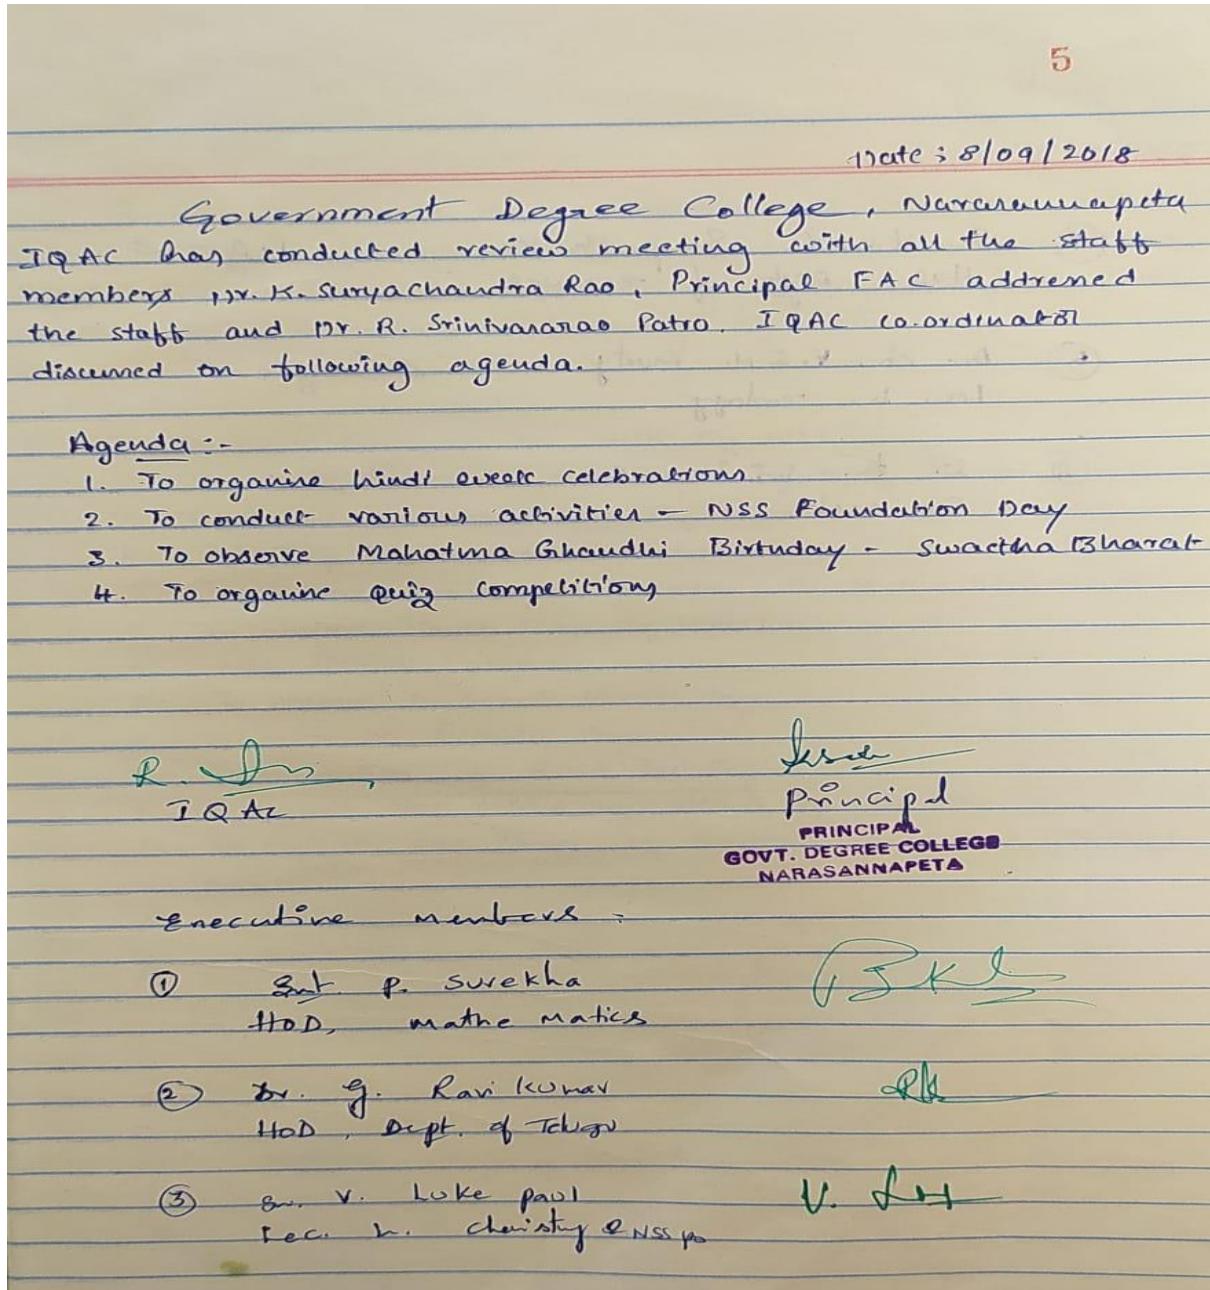 5
Date : 8/09/2018
Government Degree College, Narasannapeta
IQAC has conducted review meeting with all the staff
members Dr. K. Suryachandra Rao, Principal FAC addressed
the staff and Dr. R. Srinivasarao Patro. IQAC co.ordinator
discussed on following agenda.
Agenda :-
1. To organise hindi week celebrations
2. To conduct various activities - NSS Foundation Day
3. To observe Mahatma Ghandhi Birthday - Swactha Bharat
4. To organise Quiz Competitions
R.
IQAC
Principal
PRINCIPAL
GOVT. DEGREE COLLEGE
NARASANNAPETA
Executive members :
① Smt. P. Surekha
HOD, Mathematics
② Dr. G. Ravi Kumar
HOD, Dept. of Telugu
③ Sri. V. Luke Paul V.
Lec. in Chemistry & NSS PO